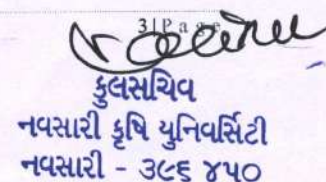 3 | P a g e
કુલસચિવ
નવસારી કૃષિ યુનિવર્સિટી
નવસારી - ૩૯૬ ૪૫૦